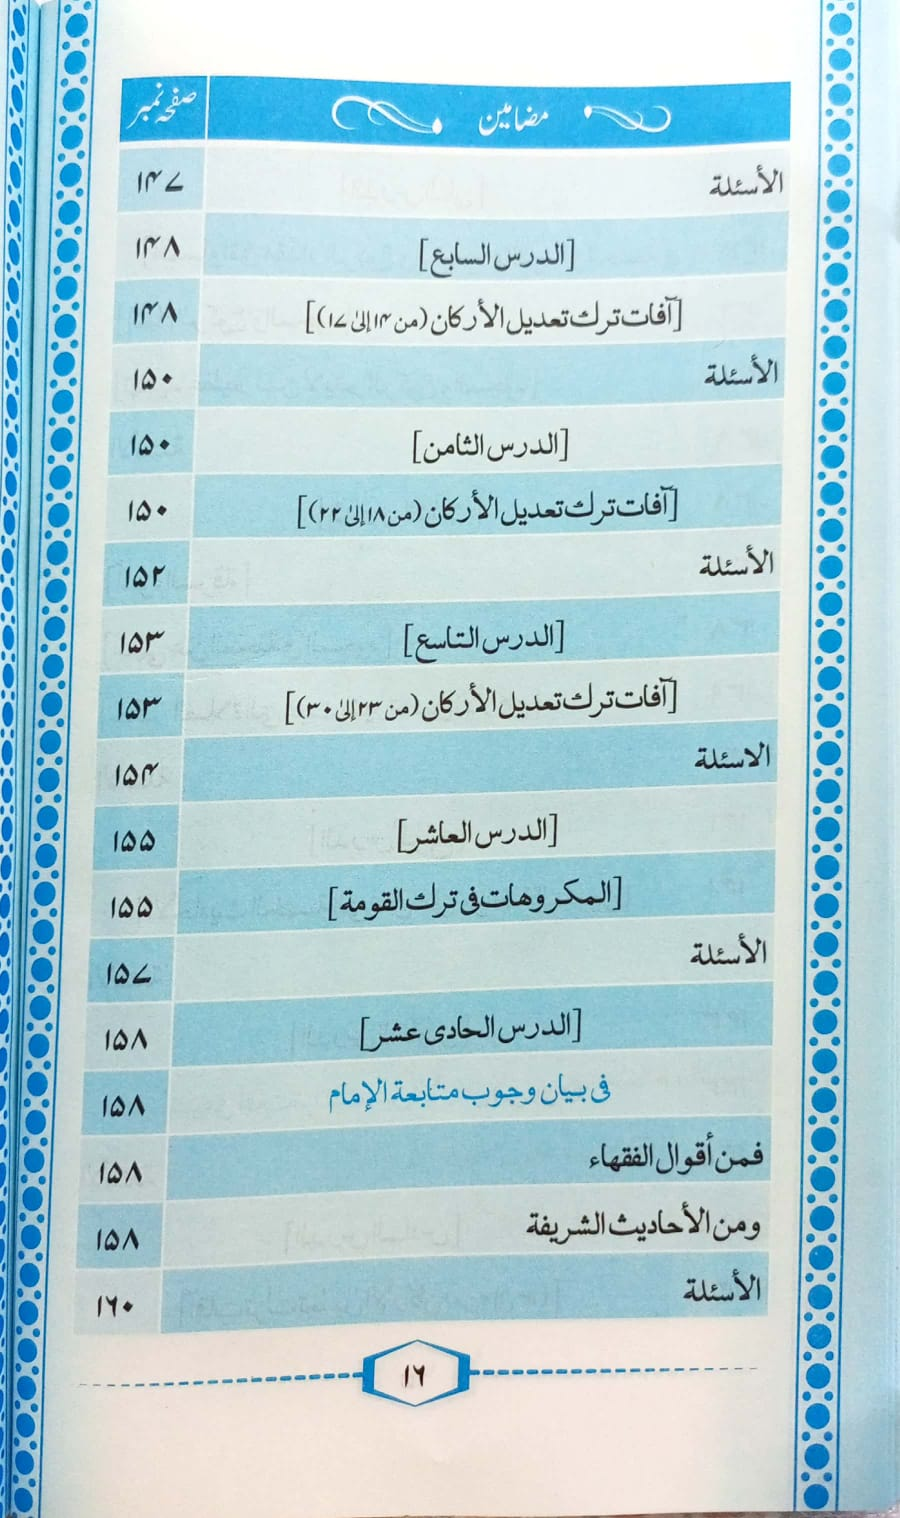 مضامین صفحہ نمبر
الأسئلة ۱۴۷
[الدرس السابع] ۱۴۸
[آفات ترك تعديل الأركان (من ۱۴ إلىٰ ۱۷)] ۱۴۸
الأسئلة ۱۵۰
[الدرس الثامن] ۱۵۰
[آفات ترك تعديل الأركان (من ۱۸ إلىٰ ۲۲)] ۱۵۰
الأسئلة ۱۵۲
[الدرس التاسع] ۱۵۳
[آفات ترك تعديل الأركان (من ۲۳ إلىٰ ۳۰)] ۱۵۳
الاسئلة ۱۵۴
[الدرس العاشر] ۱۵۵
[المكروهات فی ترك القومة] ۱۵۵
الأسئلة ۱۵۷
[الدرس الحادی عشر] ۱۵۸
فی بيان وجوب متابعة الإمام ۱۵۸
فمن أقوال الفقهاء ۱۵۸
ومن الأحاديث الشريفة ۱۵۸
الأسئلة ۱۶۰
۱۶